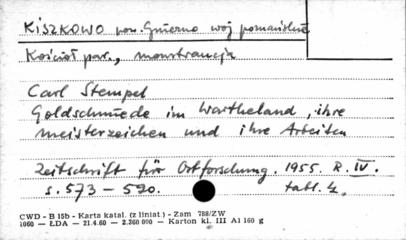 KISZKOWO pow. Gniezno woj poznańskie
Kościół par., monstrancja
Carl Stempel
Goldschmiede im Wartheland, ihre
meisterzeichen und ihre Arbeiten
Zeitschrift für Ostforschung. 1955. R. IV.
s. 573 – 590. tabl. 4.
CWD - B 15b - Karta katal. (z liniat.) - Zam 788/ZW
1060 — ŁDA — 21.4.60 — 2.260 000 — Karton kl. III A1 160 g